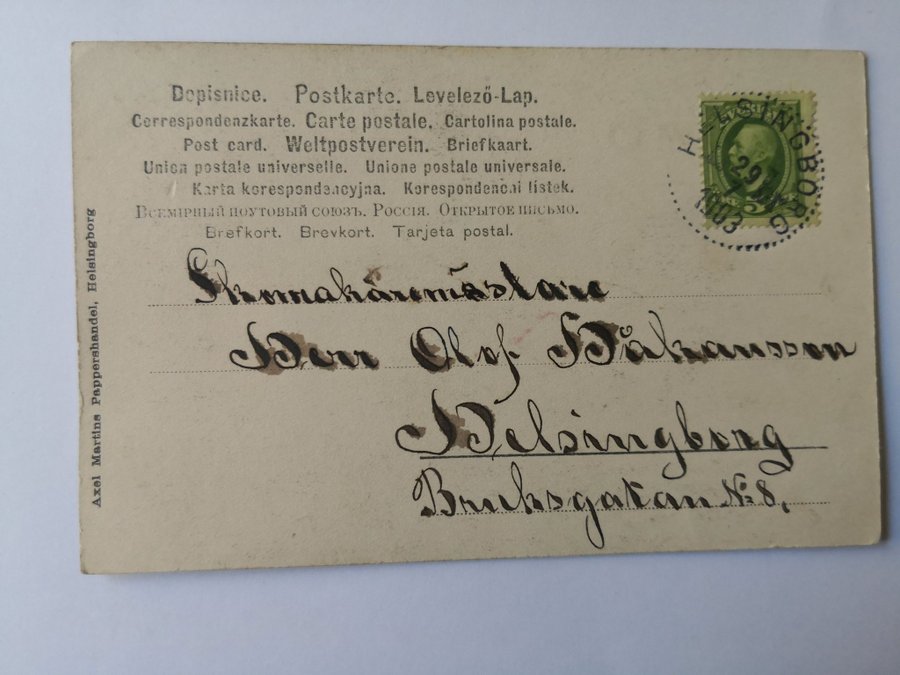 Dopisnice. Postkarte. Levelező-Lap.
Correspondenzkarte. Carte postale. Cartolina postale.
Post card. Weltpostverein. Briefkaart.
Union postale universelle. Unione postale universale.
Karta korespondencyjna. Korespondenčni listek.
Всемірный поутовый союзъ. Россія. Открытое письмо.
Brefkort. Brevkort. Tarjeta postal.
HELSINGBORG
29
7
1903
Skomakaremästare
Herr Olof Håkansson
Helsingborg
Bruksgatan № 8,
Axel Martins Pappershandel, Helsingborg